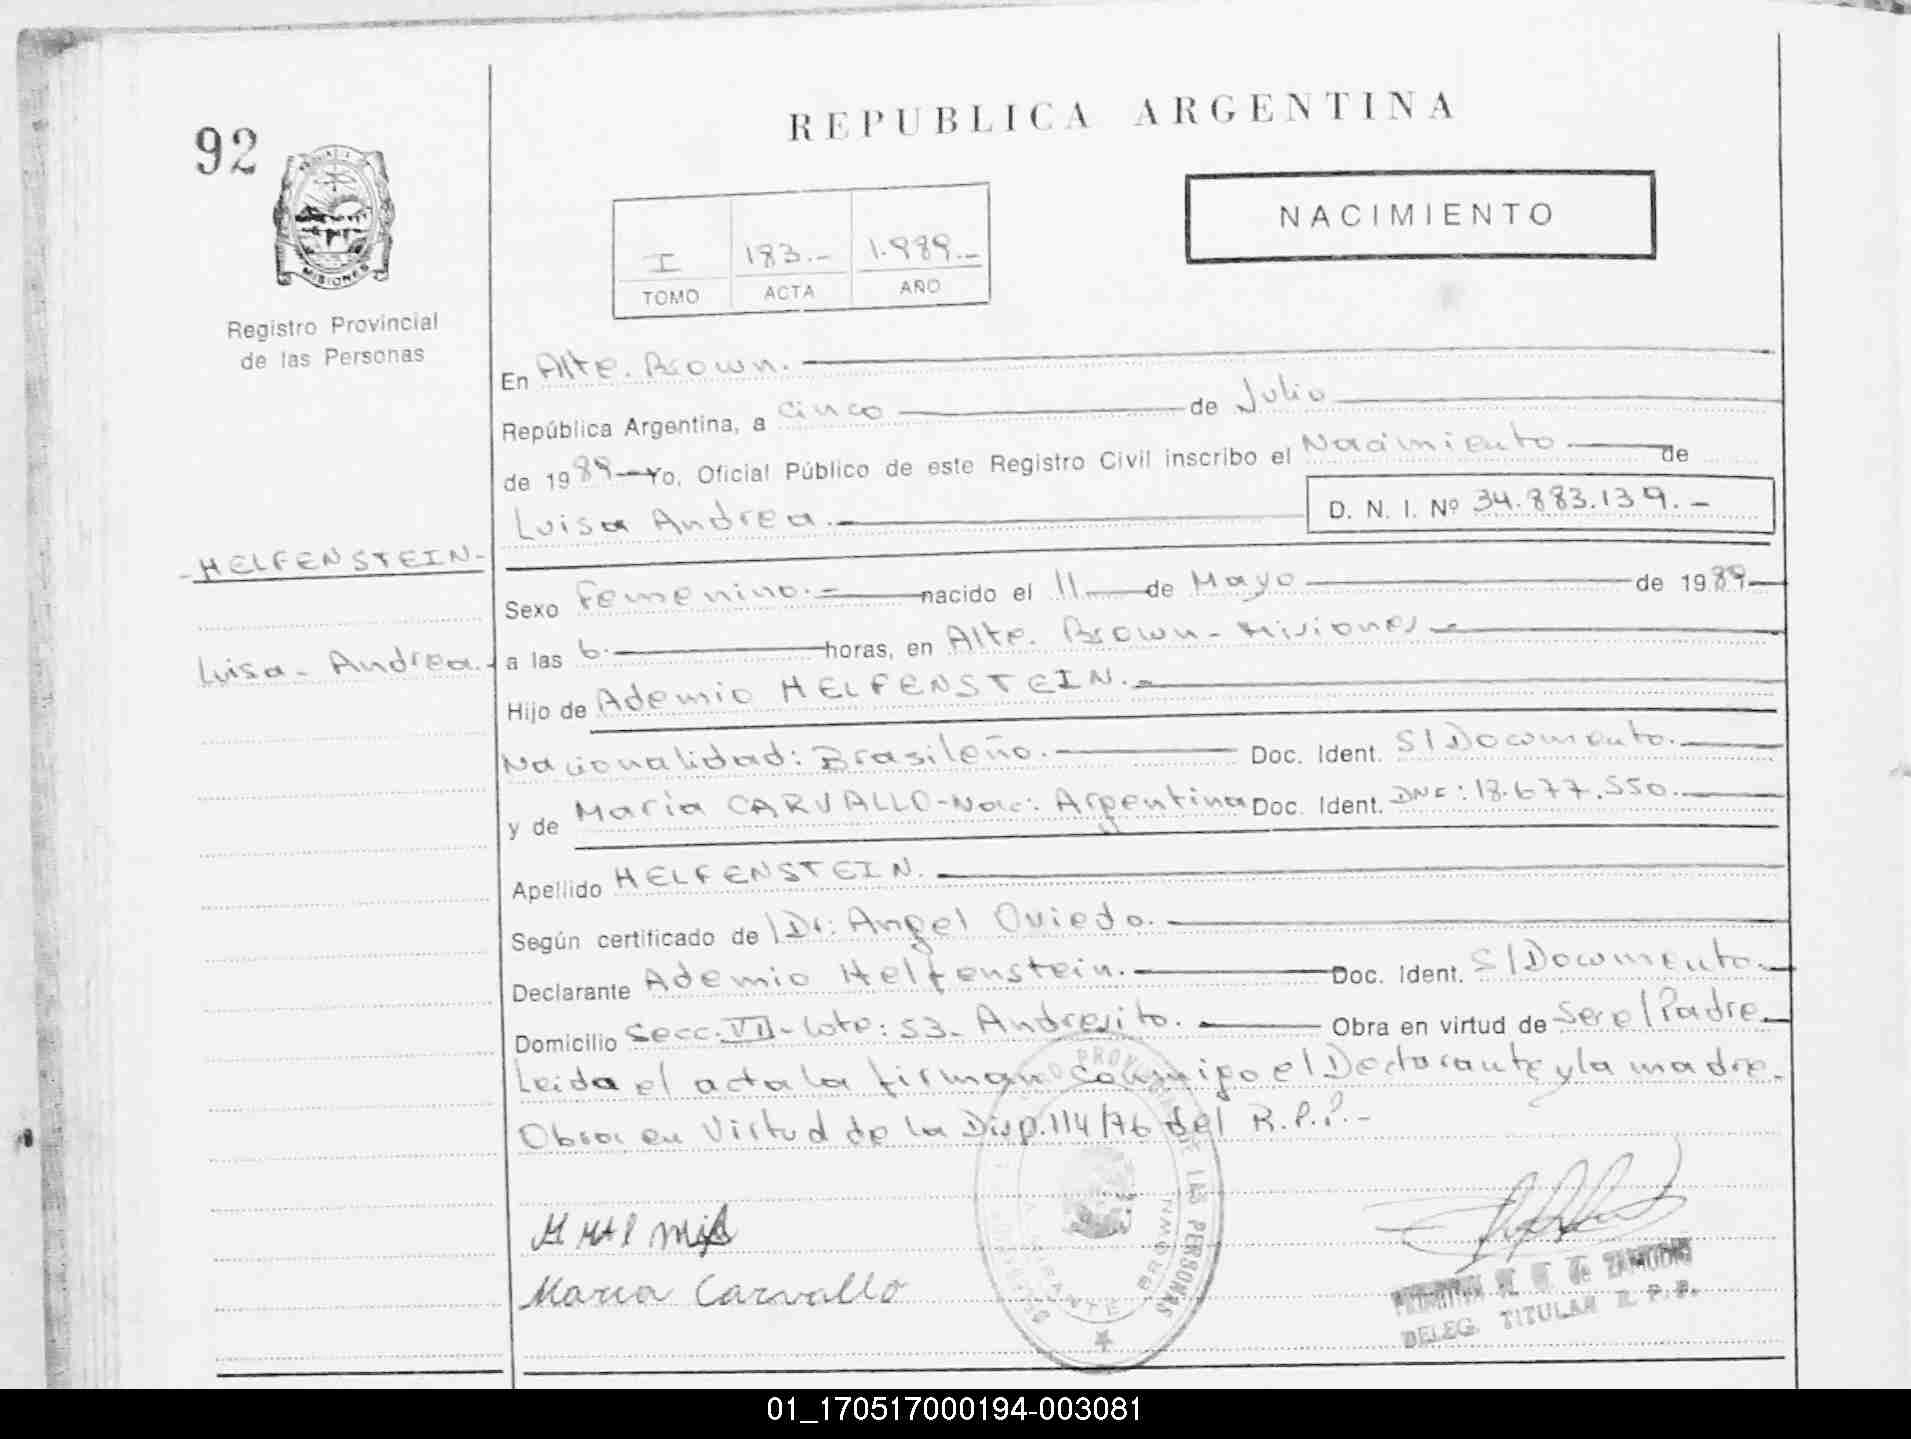 92
REPUBLICA ARGENTINA
NACIMIENTO
MISIONES
Registro Provincial
de las Personas
I 183.- 1.989.-
TOMO ACTA AÑO
En Alte. Brown.
República Argentina, a cinco de Julio
de 1989 Yo, Oficial Público de este Registro Civil inscribo el Nacimiento de
Luisa Andrea.- D. N. I. Nº 34.883.139.-
- HELFENSTEIN-
Sexo Femenino.- nacido el 11 de Mayo de 1989
Luisa - Andrea.-
a las 6. horas, en Alte. Brown - Misiones -
Hijo de Ademio HELFENSTEIN.-
Nacionalidad: Brasileño. Doc. Ident. S/Documento.
y de María CARVALLO-Nac: Argentina Doc. Ident. DNI: 18.677.550.
Apellido HELFENSTEIN.
Según certificado de /Dr: Angel Oviedo.
Declarante Ademio Helfenstein. Doc. Ident. S/Documento.
Domicilio Secc. VII - Lote: 53 - Andresito. Obra en virtud de Ser el Padre.
Leida el acta la firman conmigo el Declarante y la madre.
Obra en Virtud de la Disp. 114/76 del R.P.P.-
DE LAS PERSONAS
BROWN
Maria Carvallo
de ZAMUDIO
DELEG. TITULAR R. P. P.
01_170517000194-003081